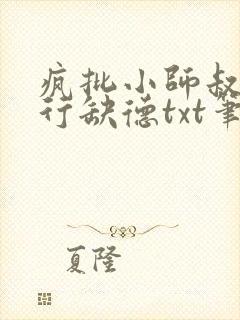 疯批小师叔
行缺德txt笔
夏隆